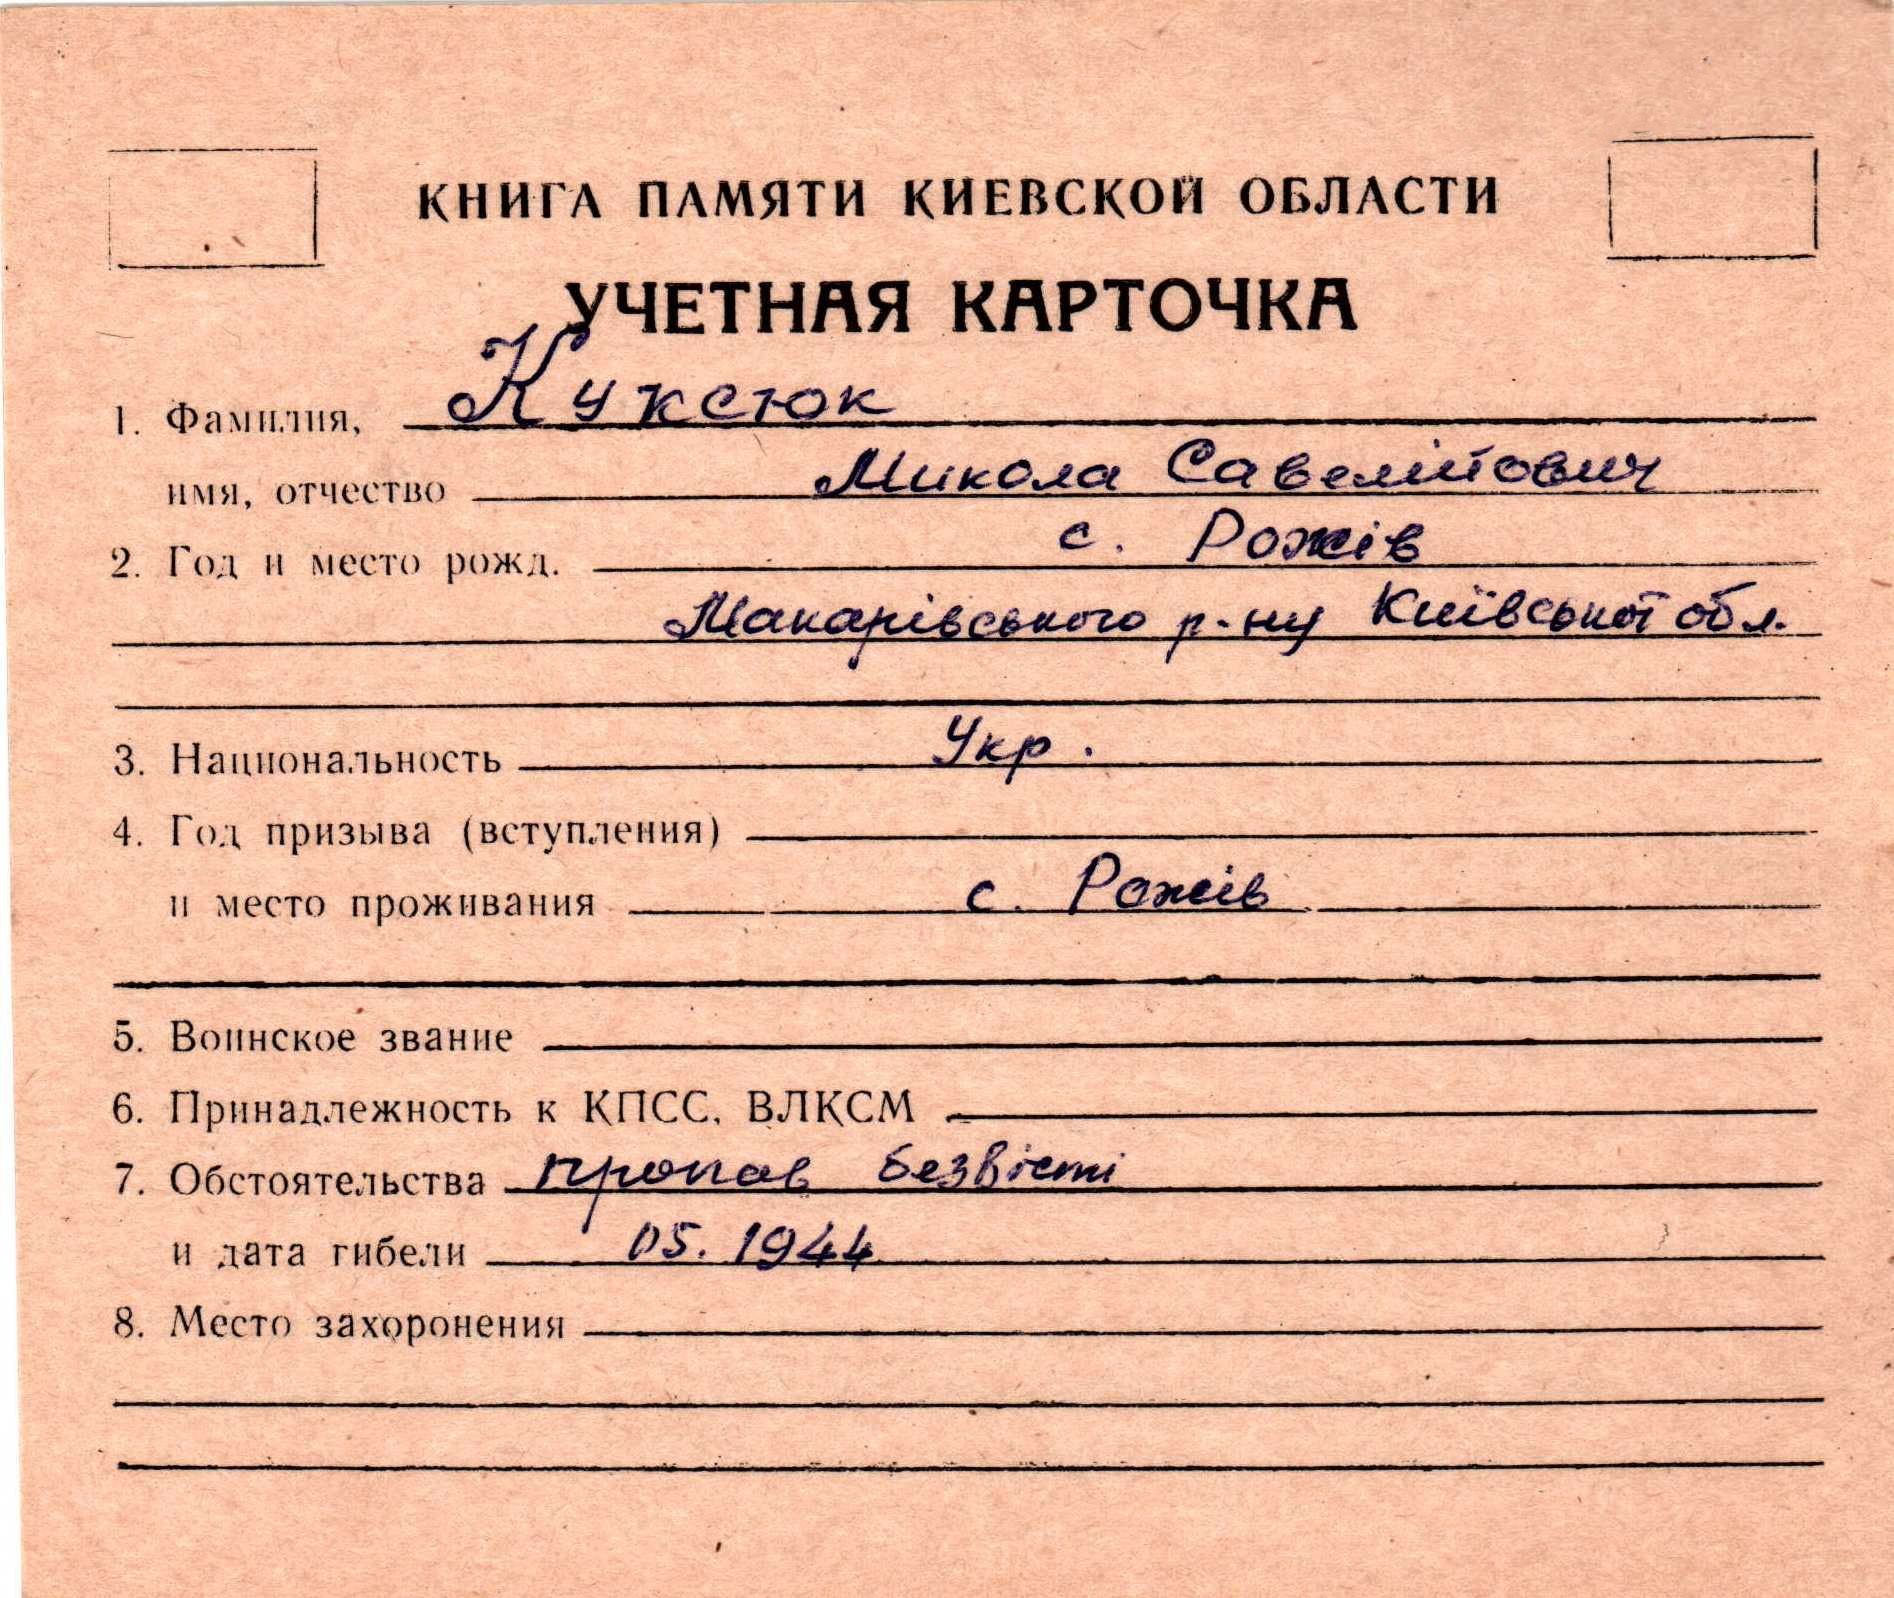 КНИГА ПАМЯТИ КИЕВСКОЙ ОБЛАСТИ
УЧЕТНАЯ КАРТОЧКА
1. Фамилия, Куксюк
имя, отчество Микола Савелійович
2. Год и место рожд. с. Рожів
Макарівського р-ну Київської обл.
3. Национальность Укр.
4. Год призыва (вступления)
и место проживания с. Рожів
5. Воинское звание
6. Принадлежность к КПСС, ВЛКСМ
7. Обстоятельства пропав безвісті
и дата гибели 05. 1944
8. Место захоронения